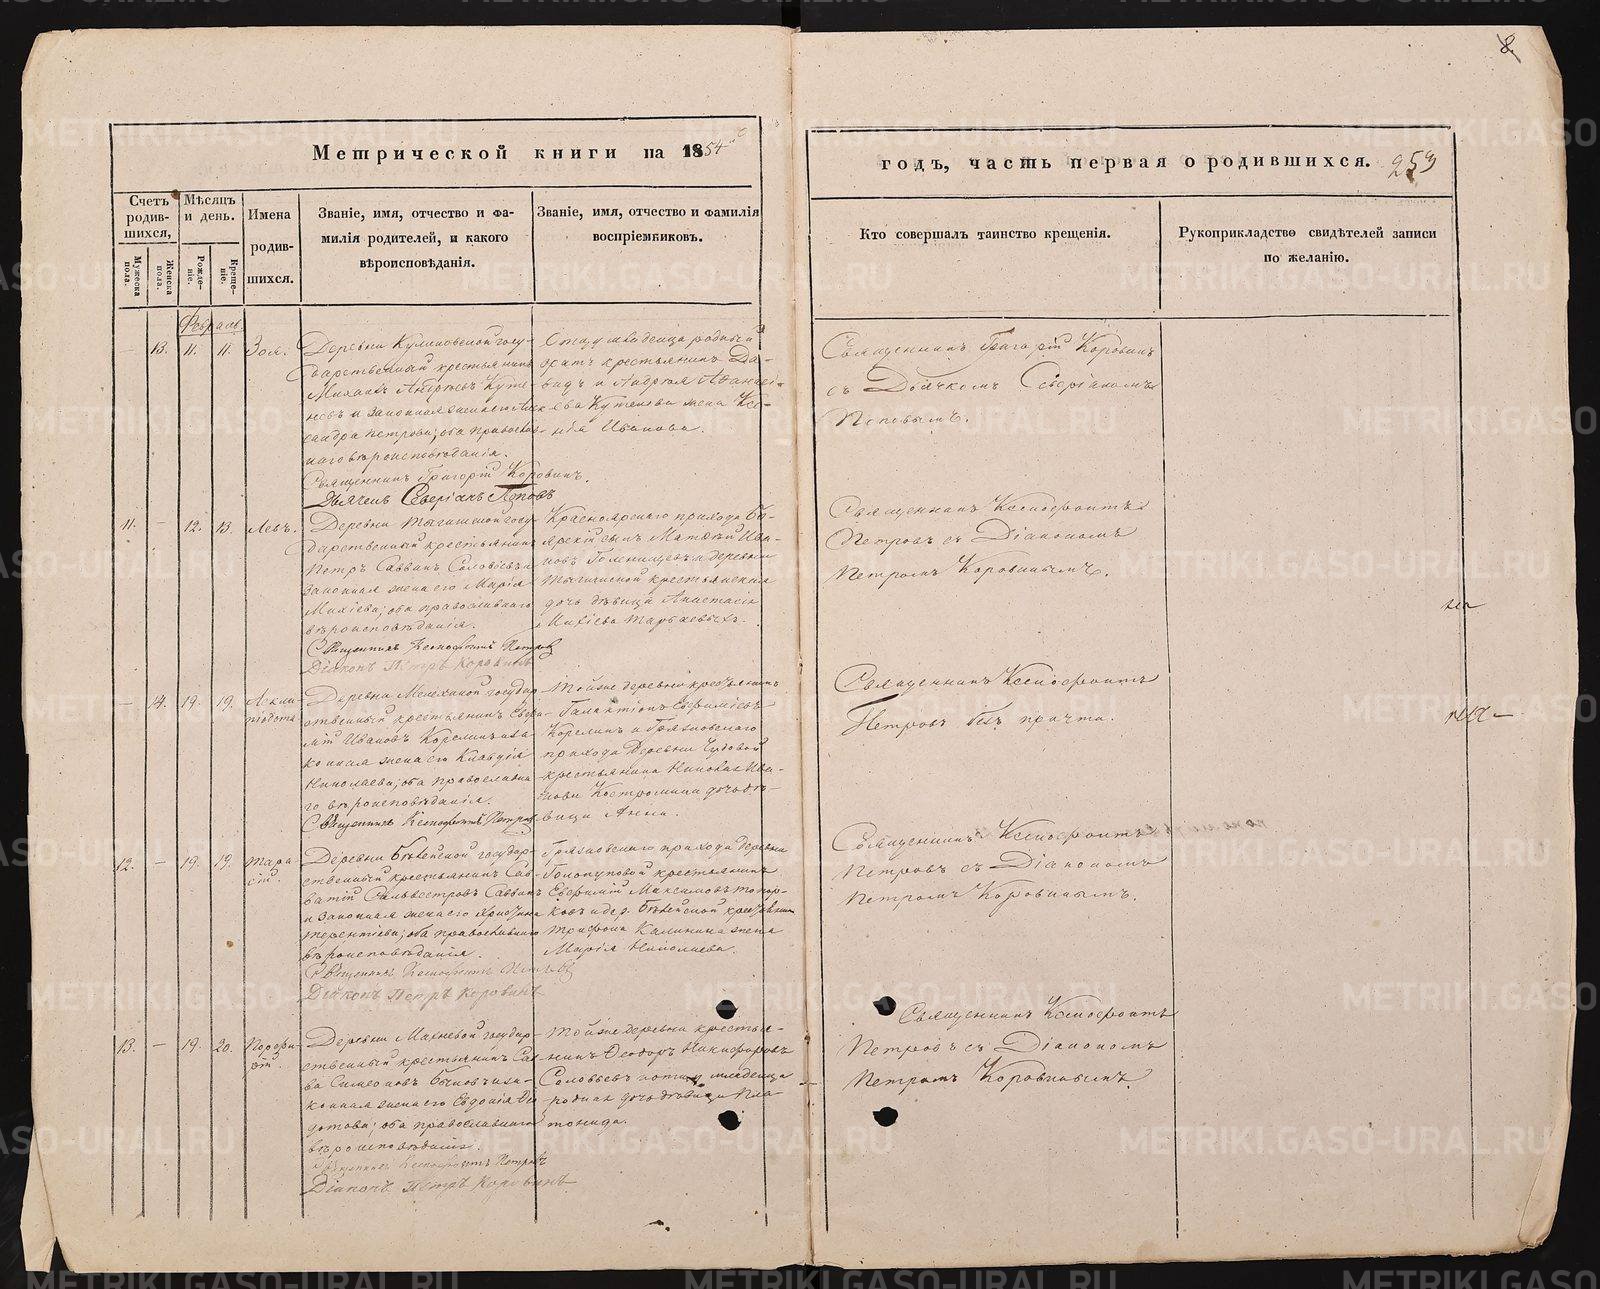 8.
Метрической книги на 1854
годъ, часть первая о родившихся. 253
Счетъ родившихся,
Мужеска пола.
Женска пола.
Мѣсяцъ и день.
Рожденіе.
Крещеніе.
Имена родившихся.
Званіе, имя, отчество и фамилія родителей, и какого вѣроисповѣданія.
Званіе, имя, отчество и фамилія воспріемниковъ.
Кто совершалъ таинство крещенія.
Рукоприкладство свидѣтелей записи по желанію.
Февраль
— 13. 11. 11. Зоя.
Деревни Куликовской госу-
дарственный крестьянинъ
Михаилъ Андреевъ Куте-
невъ и законная жена его Алек-
сандра Петрова; оба православ-
наго вѣроисповѣданія.
Священникъ Григорій Коровинъ.
Дьячекъ Северіанъ Поповъ
Сему младенцу родный
братъ крестьянинъ Да-
видъ и Андрея
Кутенева жена Ксе-
нія Иванова.
Священникъ Григорій Коровинъ
съ Дьячкомъ Северіаномъ
Поповымъ.
11. — 12. 13. Левъ.
Деревни Тыгишской госу-
дарственный крестьянинъ
Петръ Саввинъ Соловьевъ и
законная жена его Марія
Михіева; оба православнаго
вѣроисповѣданія.
Священникъ Ксенофонтъ Петровъ
Діаконъ Петръ Коровинъ
Красноярскаго прихода бо-
ярскій сынъ Матѳей Ива-
новъ Голенищевъ и деревни
Тыгишской крестьянская
дочь дѣвица Анастасія
Михіева
Священникъ Ксенофонтъ
Петровъ съ Діакономъ
Петромъ Коровинымъ.
— 14. 19. 19.
Деревни Мелехиной государ-
ственный крестьянинъ Евѳи-
мій Ивановъ Корелинъ и за-
конная жена его Клавдія
Николаева; оба православна-
го вѣроисповѣданія.
Священникъ Ксенофонтъ Петровъ
Той же деревни крестьянинъ
Галактіонъ Евѳиміевъ
Корелинъ и Грязновскаго
прихода деревни
крестьянина Николая Ива-
нова Костромина дочь дѣ-
вица Анна.
Священникъ Ксенофонтъ
Петровъ безъ причта.
12. — 19. 19. Тарасій.
Деревни Бѣлейской государ-
ственный крестьянинъ Сав-
ватій Сильвестровъ Саввинъ
и законная жена его Христина
Терентіева; оба православнаго
вѣроисповѣданія.
Священникъ Ксенофонтъ Петровъ
Діаконъ Петръ Коровинъ
Грязновскаго прихода деревни
крестьянинъ
Евѳимій Максимовъ Топор-
ковъ и дер. Бѣлейской крестьянина
Трифона Калинина жена
Марія Николаева.
Священникъ Ксенофонтъ
Петровъ съ Діакономъ
Петромъ Коровинымъ.
13. — 19. 20. Порфирій.
Деревни Махневой государ-
ственный крестьянинъ Сав-
ва Симеоновъ Быковъ и за-
конная жена его Евдокія Ѳе-
дотова; оба православнаго
вѣроисповѣданія.
Священникъ Ксенофонтъ Петровъ
Діаконъ Петръ Коровинъ
Той же деревни крестья-
нинъ Ѳеодоръ Никифоровъ
Соловьевъ и младенца
родная дочь дѣвица Пла-
тонида.
Священникъ Ксенофонтъ
Петровъ съ Діакономъ
Петромъ Коровинымъ.
METRIKI.GASO-URAL.RU